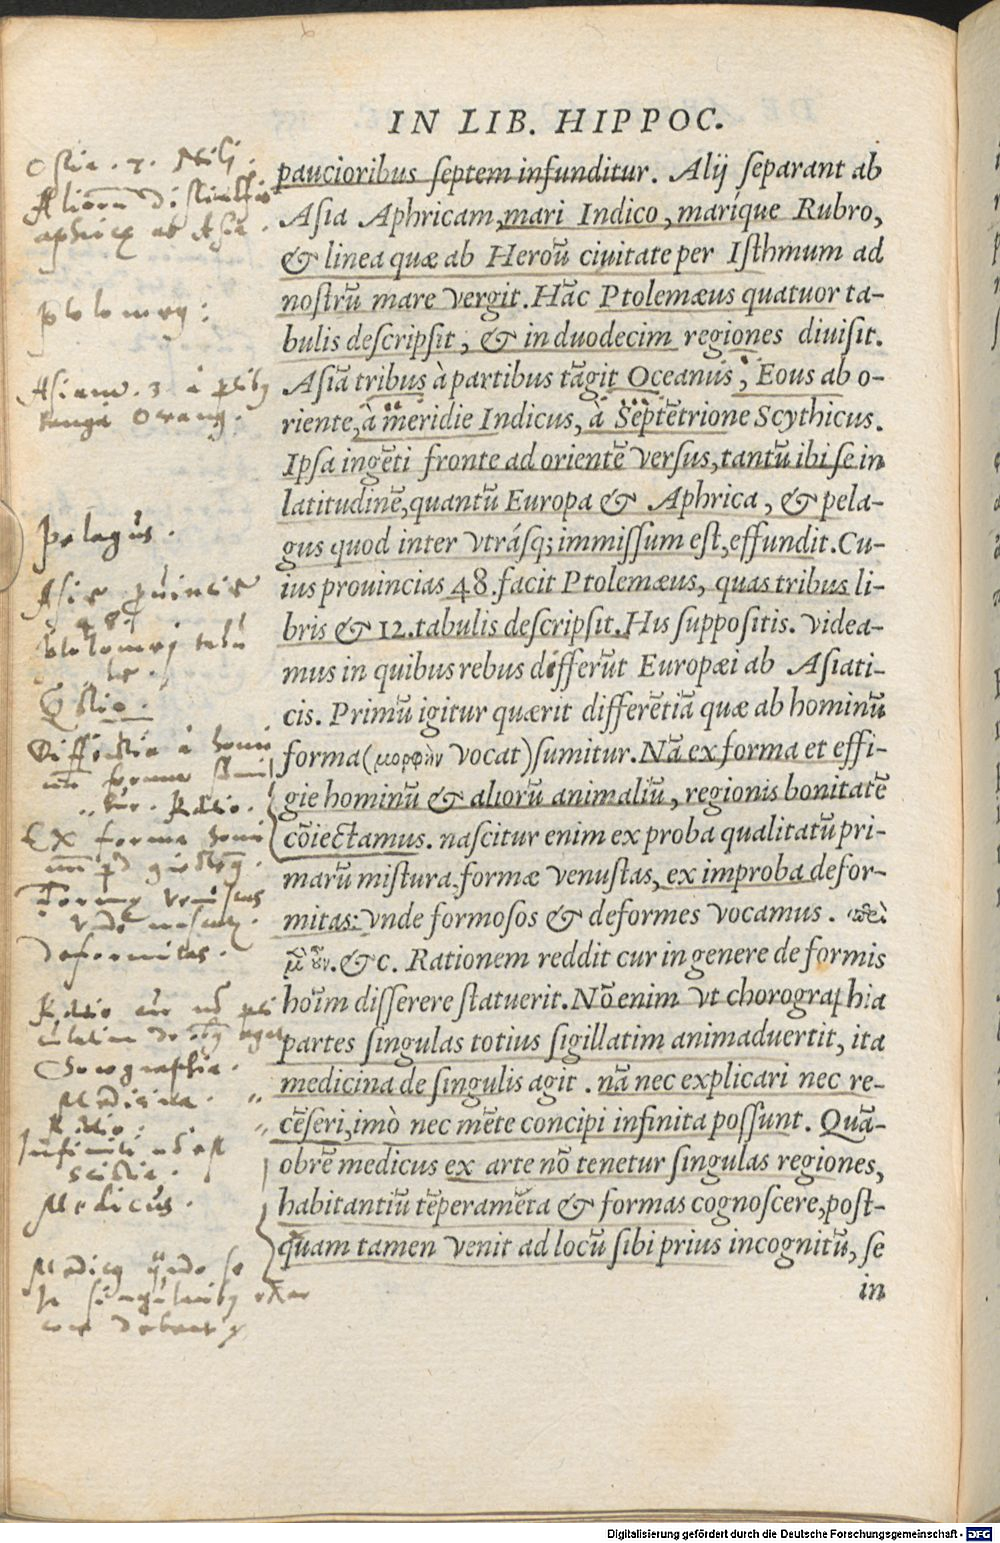 IN LIB. HIPPOC.
paucioribus septem infunditur. Alij separant ab
Asia Aphricam, mari Indico, marique Rubro,
& linea quæ ab Heroū ciuitate per Isthmum ad
nostrū mare vergit. Hāc Ptolemæus quatuor ta-
bulis descripsit, & in duodecim regiones diuisit.
Asiā tribus à partibus tāgit Oceanus, Eous ab o-
riente, à meridie Indicus, à Septētrione Scythicus.
Ipsa ingēti fronte ad orientē versus, tantū ibi se in
latitudinē, quantū Europa & Aphrica, & pela-
gus quod inter vtrásq; immissum est, effundit. Cu-
ius prouincias 48. facit Ptolemæus, quas tribus li-
bris & 12. tabulis descripsit. His suppositis. videa-
mus in quibus rebus differūt Europæi ab Asiati-
cis. Primū igitur quærit differētiā quæ ab hominū
forma (μορφὴν vocat) sumitur. Nā ex forma et effi-
gie hominū & aliorū animaliū, regionis bonitatē
cōiectamus. nascitur enim ex proba qualitatū pri-
marū mistura, formæ venustas, ex improba defor-
mitas: vnde formosos & deformes vocamus. περὶ
μ̀ οὖν. &c. Rationem reddit cur in genere de formis
hoīm disserere statuerit. Nō enim vt chorographia
partes singulas totius sigillatim animaduertit, ita
medicina de singulis agit. nā nec explicari nec re-
cēseri, imò nec mēte concipi infinita possunt. Quā-
obrē medicus ex arte nō tenetur singulas regiones,
habitantiū tēperamēta & formas cognoscere, post-
quam tamen venit ad locū sibi prius incognitū, se
in
Ostia. 7. Nilj.
aphricę ab Asia.
ptolomęj:
Pelagus.
48.
Ex forma homi
Formę venustas
vnde nascatur.
Deformitas.
Chorographia.
Medicina.
Ratio.
Medicus.
Digitalisierung gefördert durch die Deutsche Forschungsgemeinschaft - DFG